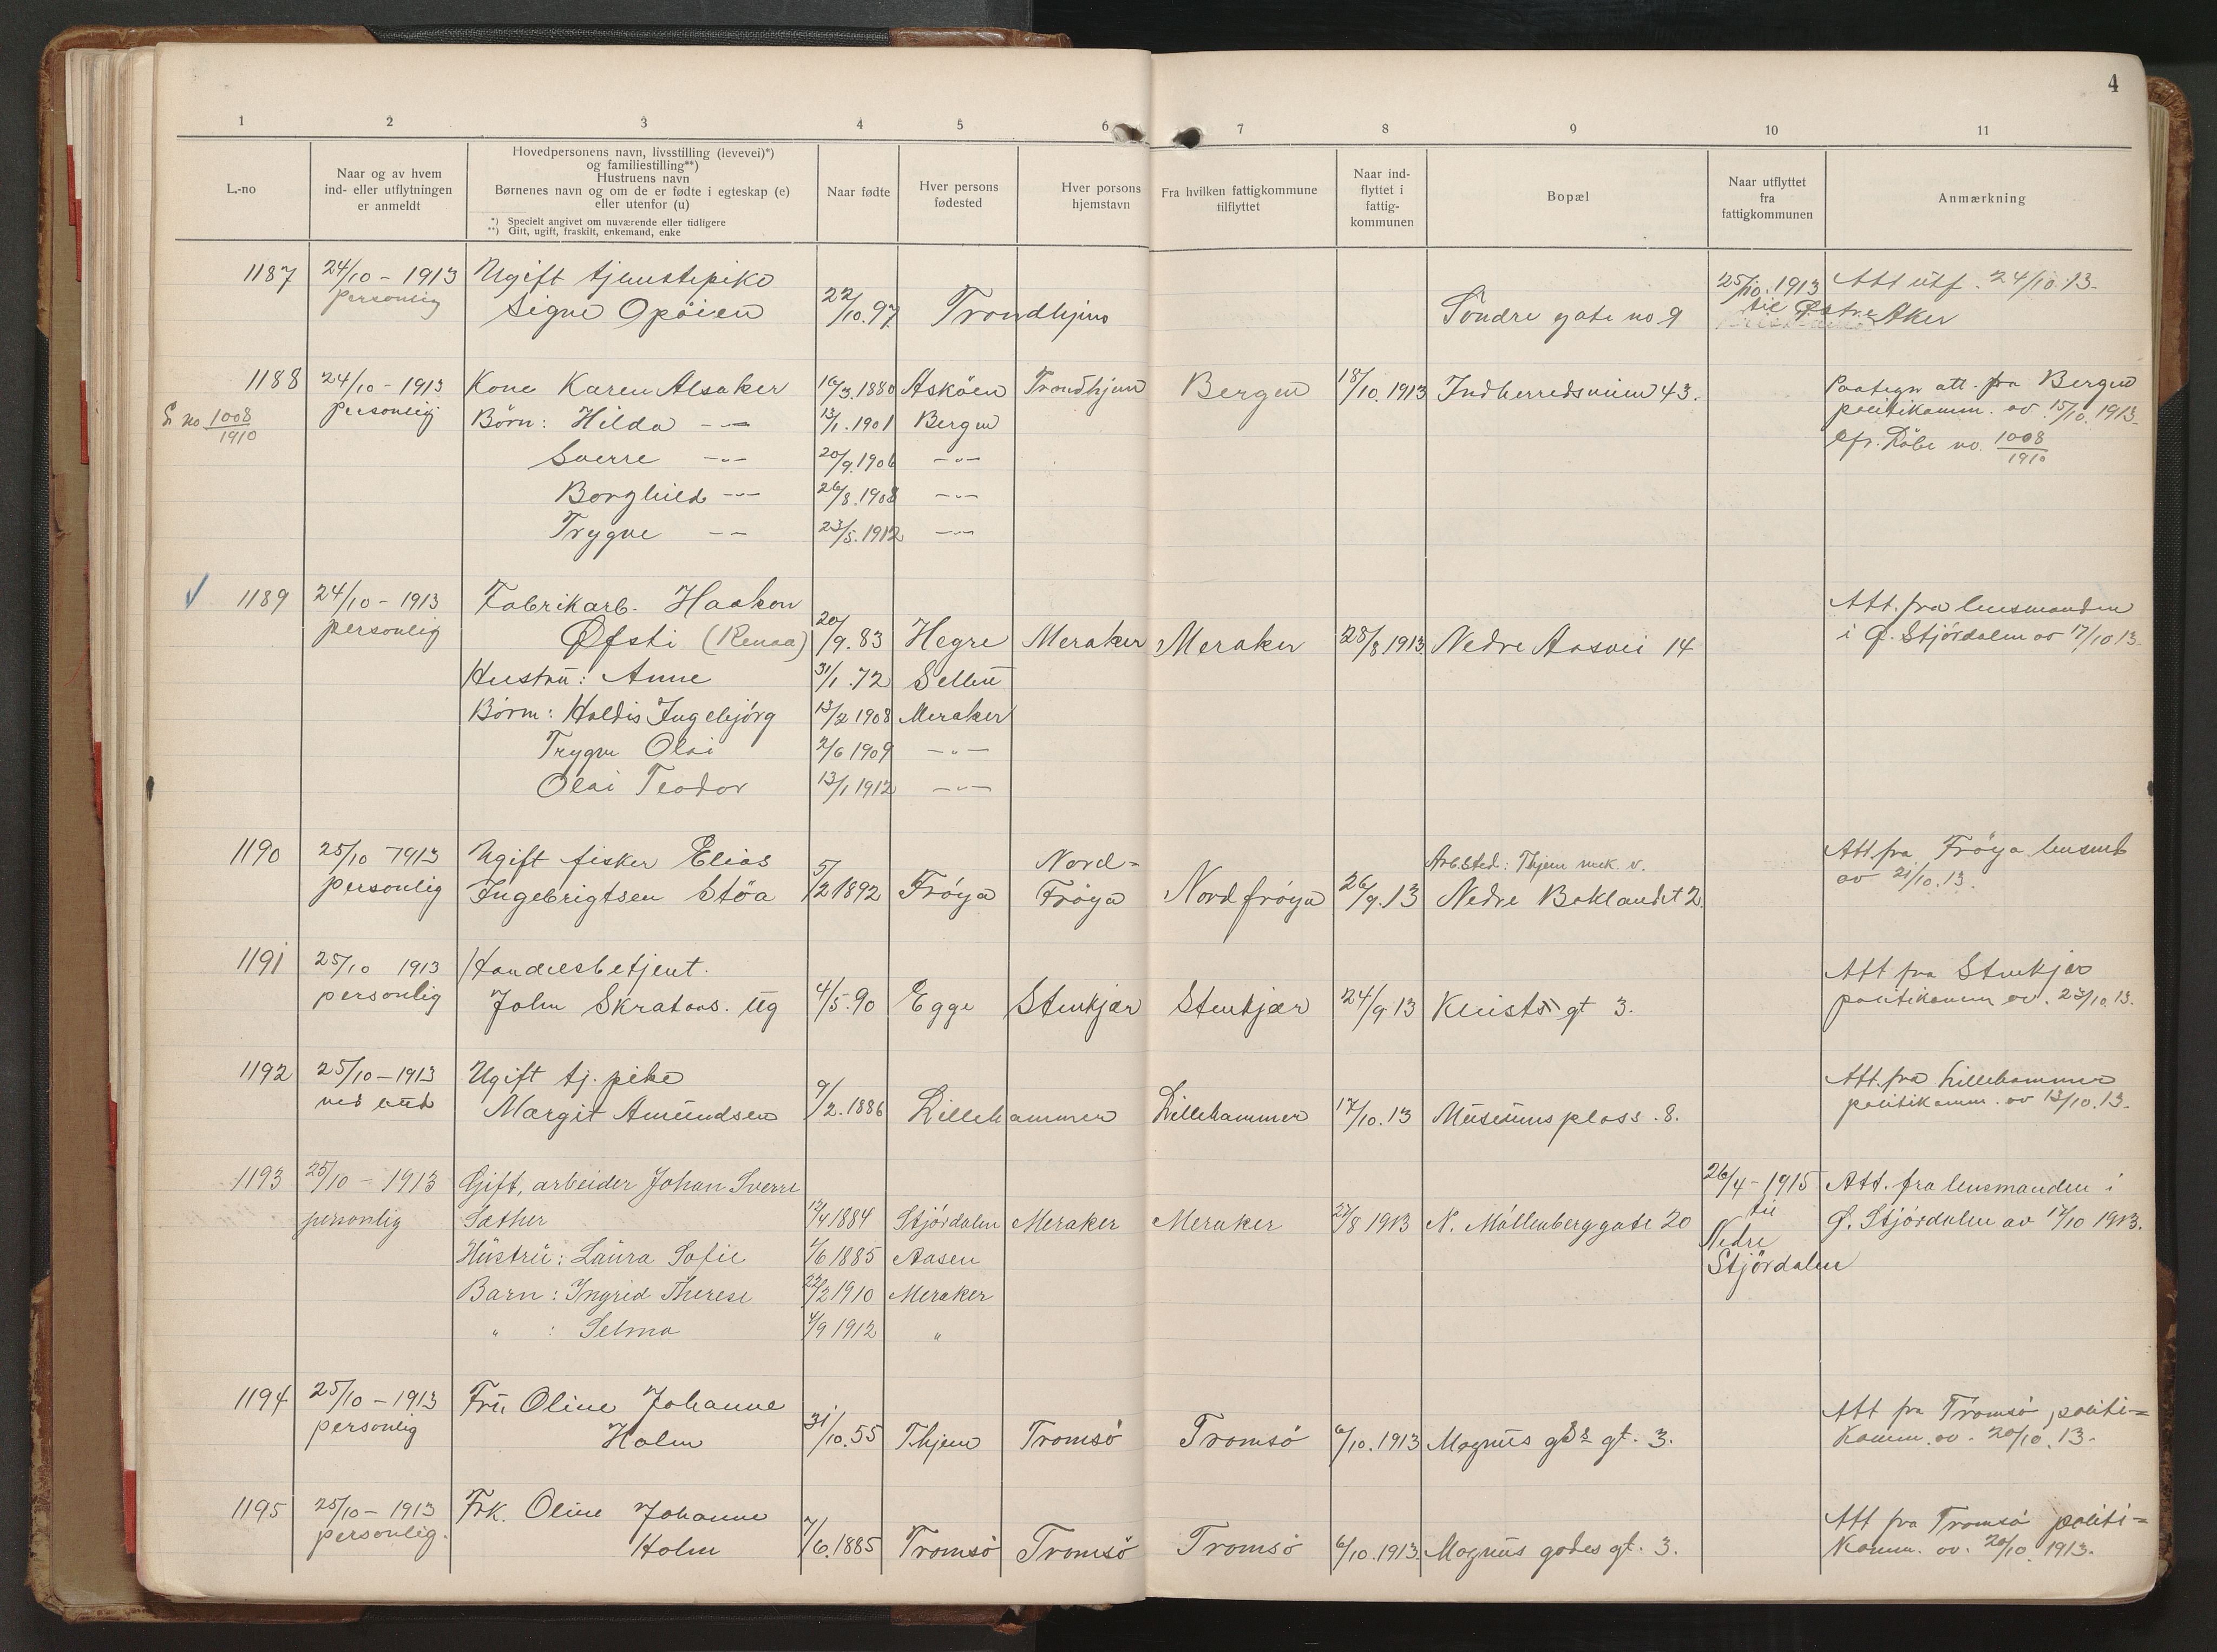 4
1 2 3 4 5 6 7 8 9 10 11
L.-no
Naar og av hvem
ind- eller utflytningen
er anmeldt
Hovedpersonens navn, livsstilling (levevei)*)
og familiestilling**)
Hustruens navn
Børnenes navn og om de er fødte i egteskap (e)
eller utenfor (u)
*) Specielt angivet om nuværende eller tidligere
**) Gift, ugift, fraskilt, enkemand, enke
Naar fødte
Hver persons
fødested
Hver porsons
hjemstavn
Fra hvilken fattigkommune
tilflyttet
Naar ind-
flyttet i
fattig-
kommunen
Bopæl
Naar utflyttet
fra
fattigkommunen
Anmærkning
1187 24/10 - 1913 Ugift tjenestepike 25/10. 1913 Att utf. 24/10.13.
personlig Signe Opöien 22/10.97 Trondhjem Söndre gate no 9 til Østre Aker
1188 24/10 - 1913 Kone Karen Alsaker 16/3.1880 Asköen Trondhjem Bergen 18/10.1913 Indherredsveien 43. Paategn att. fra Bergen
L no 1008/1910 personlig Börn: Hilda -"- 13/1.1901 Bergen politikamm. av 15/10.1913.
Sverre -"- 20/9.1906 -"- Cfr. Löbe no. 1008/1910
Borghild -"- 26/8.1908 -"-
Trygve -"- 23/5.1912 -"-
1189 24/10 - 1913 Fabrikarb. Haakon Att. fra lensmanden
personlig Øfsti (Renaa) 20/9.83 Hegre Meraker Meraker 28/8 1913 Nedre Aasvei 14 i Ø. Stjördalen av 17/10 13.
Hustru: Anne 31/1.72 Selbu
Börn: Haldis Ingebjörg 13/2 1908 Meraker
Trygve Olai 2/6 1909 -"-
Olai Teodor 13/1 1912 -"-
1190 25/10 - 1913 Ugift fisker Elias Nord- Arb.sted: Thjem mek. v. Att fra Fröya lensmd
personlig Ingebrigtsen Stöa 5/2 1892 Fröya Fröya Nordfröya 26/9.13 Nedre Baklandet 2. av 21/10.13.
1191 25/10 1913 Handelsbetjent. Att fra Stenkjær
personlig John Skrataas. Ug 4/5.90 Egge Stenkjær Stenkjær 24/9 13 gt 3. politikamm av. 23/10.13.
1192 25/10 - 1913 Ugift tj. pike Att. fra Lillehammer
ved bud Margit Amundsen 9/2.1886 Lillehammer Lillehammer 17/10.13 Museums plass. 8. politikamm. av 13/10.13.
1193 25/10 - 1913 Gift, arbeider Johan Sverre 26/4 - 1915 Att. fra lensmanden i
personlig Sæther 12/4 1884 Stjördalen Meraker Meraker 27/8 1913 N. Möllenberggate 20 til Ø. Stjördalen av 17/10 1913.
Hustru: Laura Sofie 1/6 1885 Aasen Nedre
Barn: Ingrid Therese 22/2 1910 Meraker Stjördalen
" : Selma 4/9 1912 "
1194 25/10 - 1913 Fru Oline Johanne Att fra Tromsö politi=
personlig Holm 31/10.55 Thjem Tromsö Tromsö 6/10.1913 Magnus gt. 3. kamm. av. 20/10.13.
1195 25/10 - 1913 Frk. Oline Johanne Att fra Tromsö politi=
personlig. Holm 7/6.1885 Tromsö Tromsö Tromsö 6/10.1913. Magnus godes gt. 3. kamm. av. 20/10 1913.